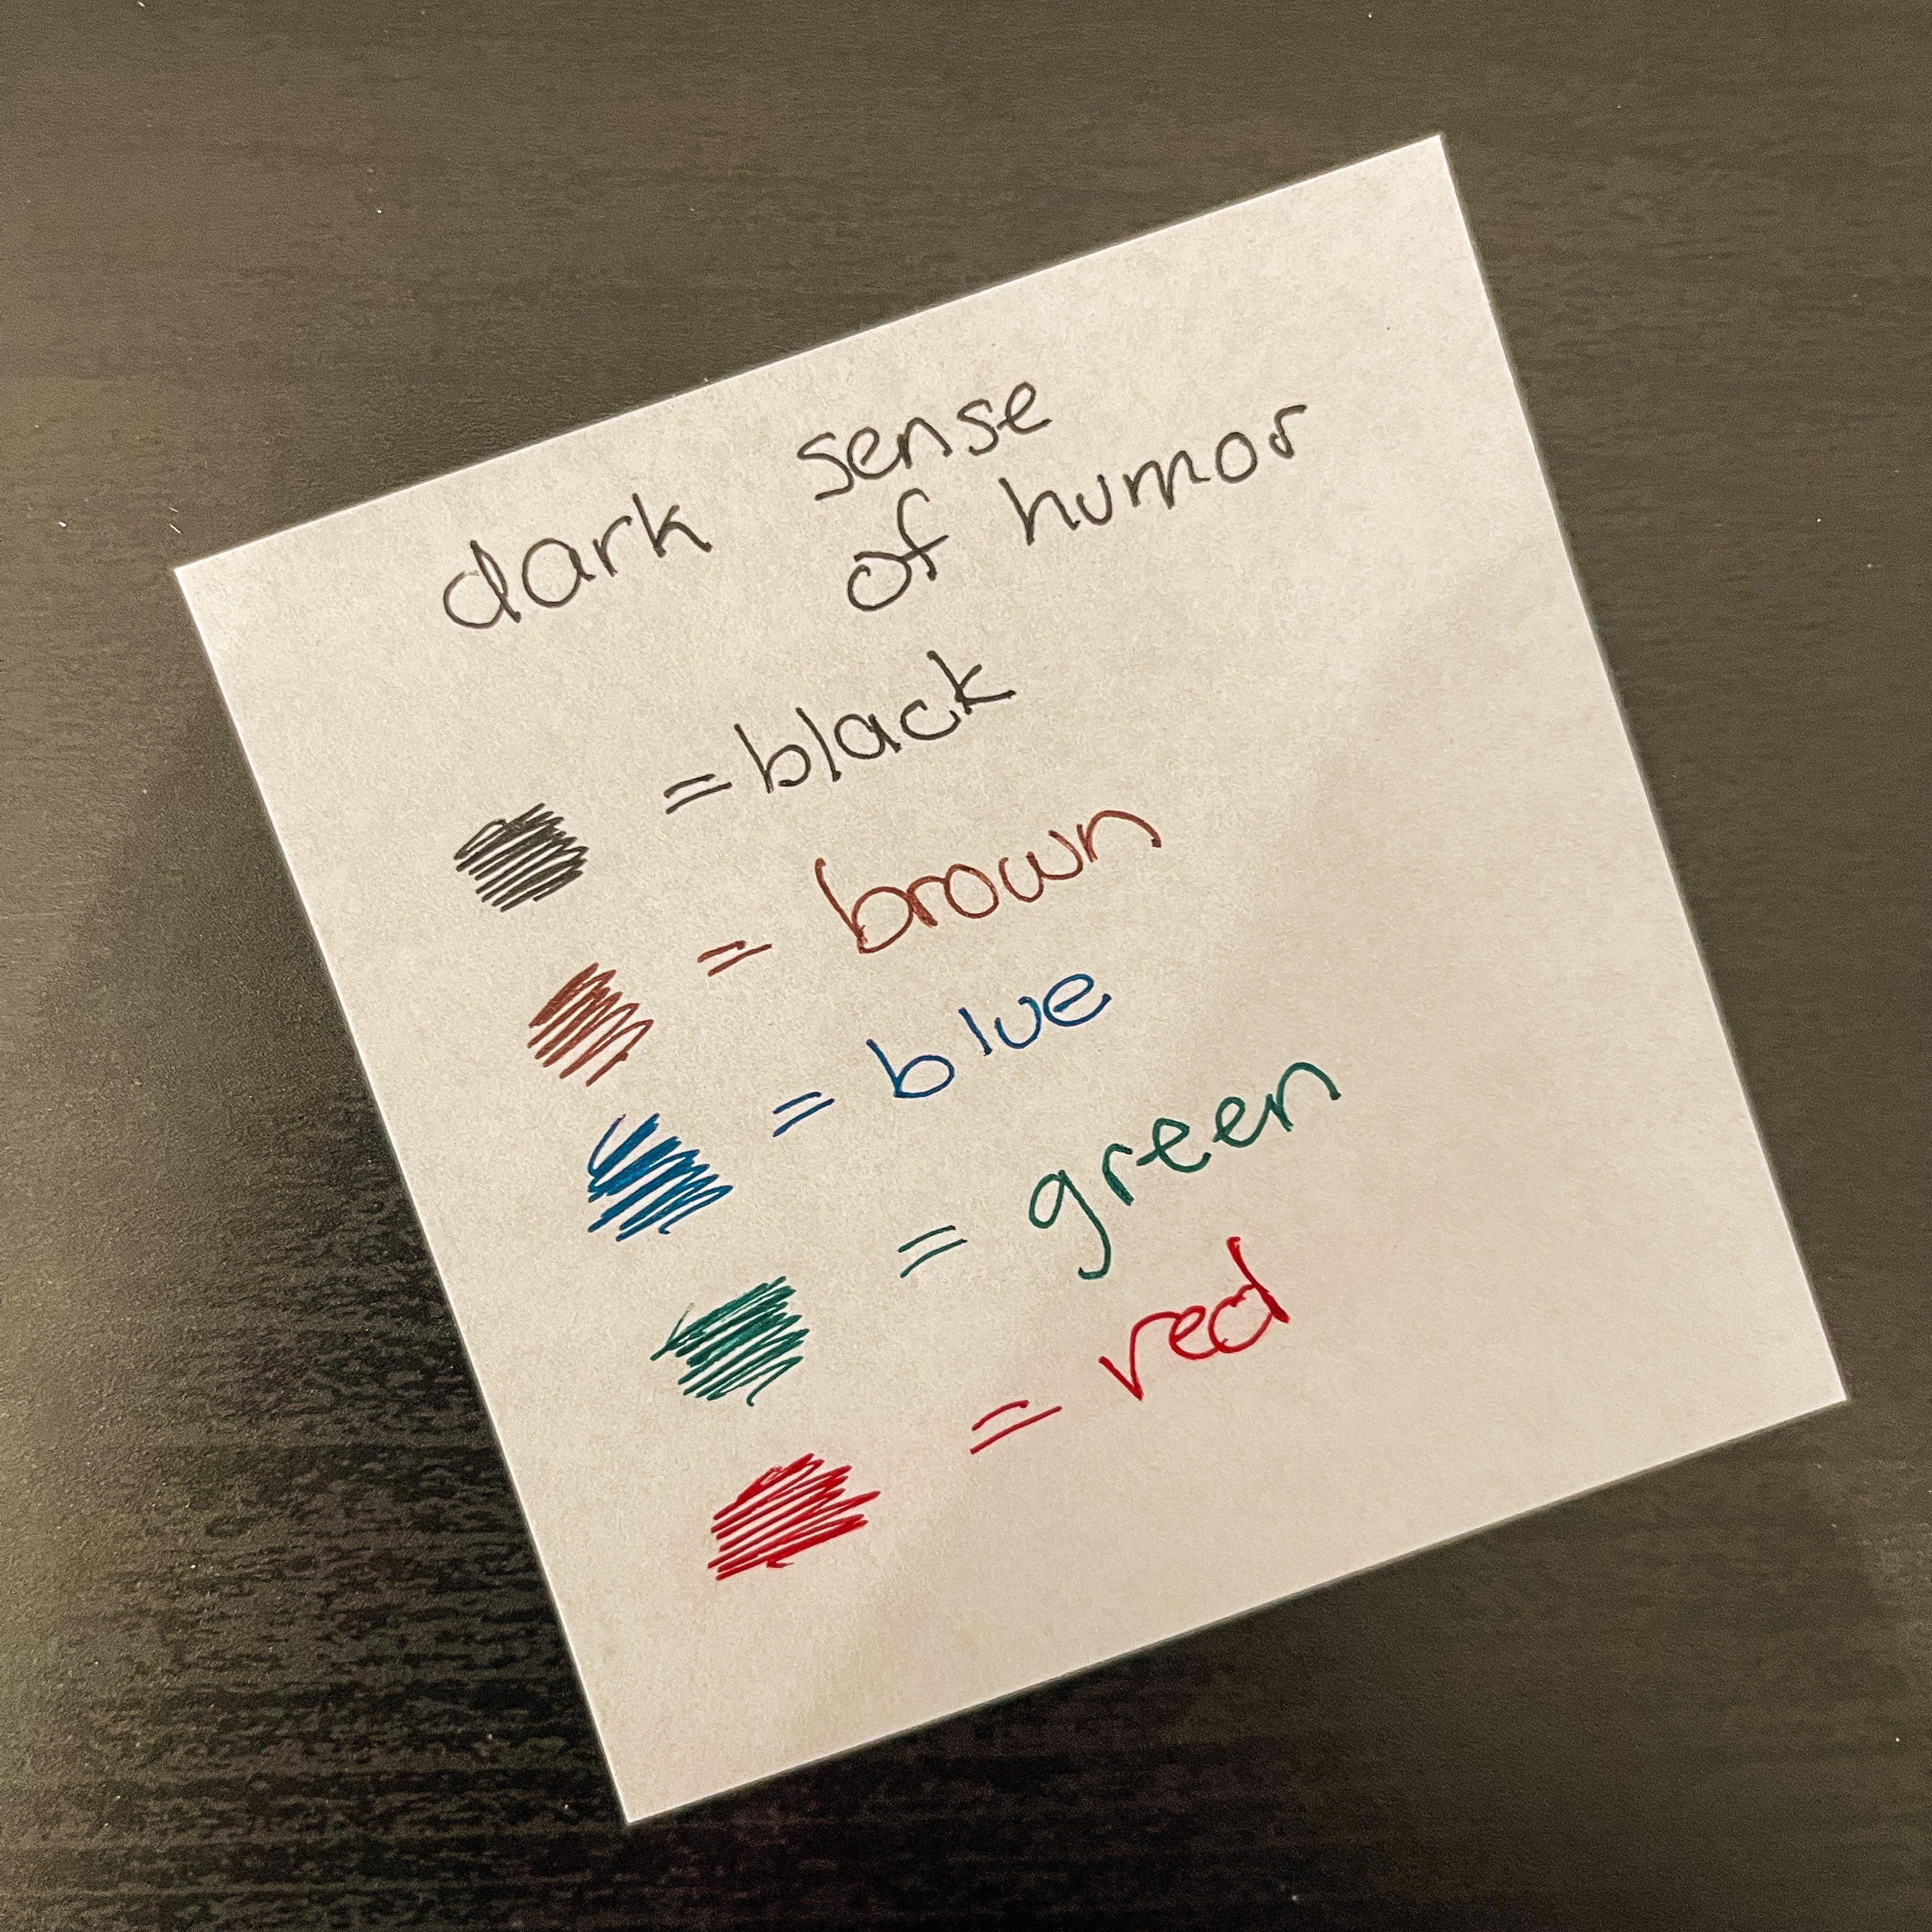 dark sense
of humor
= black
= brown
= blue
= green
= red